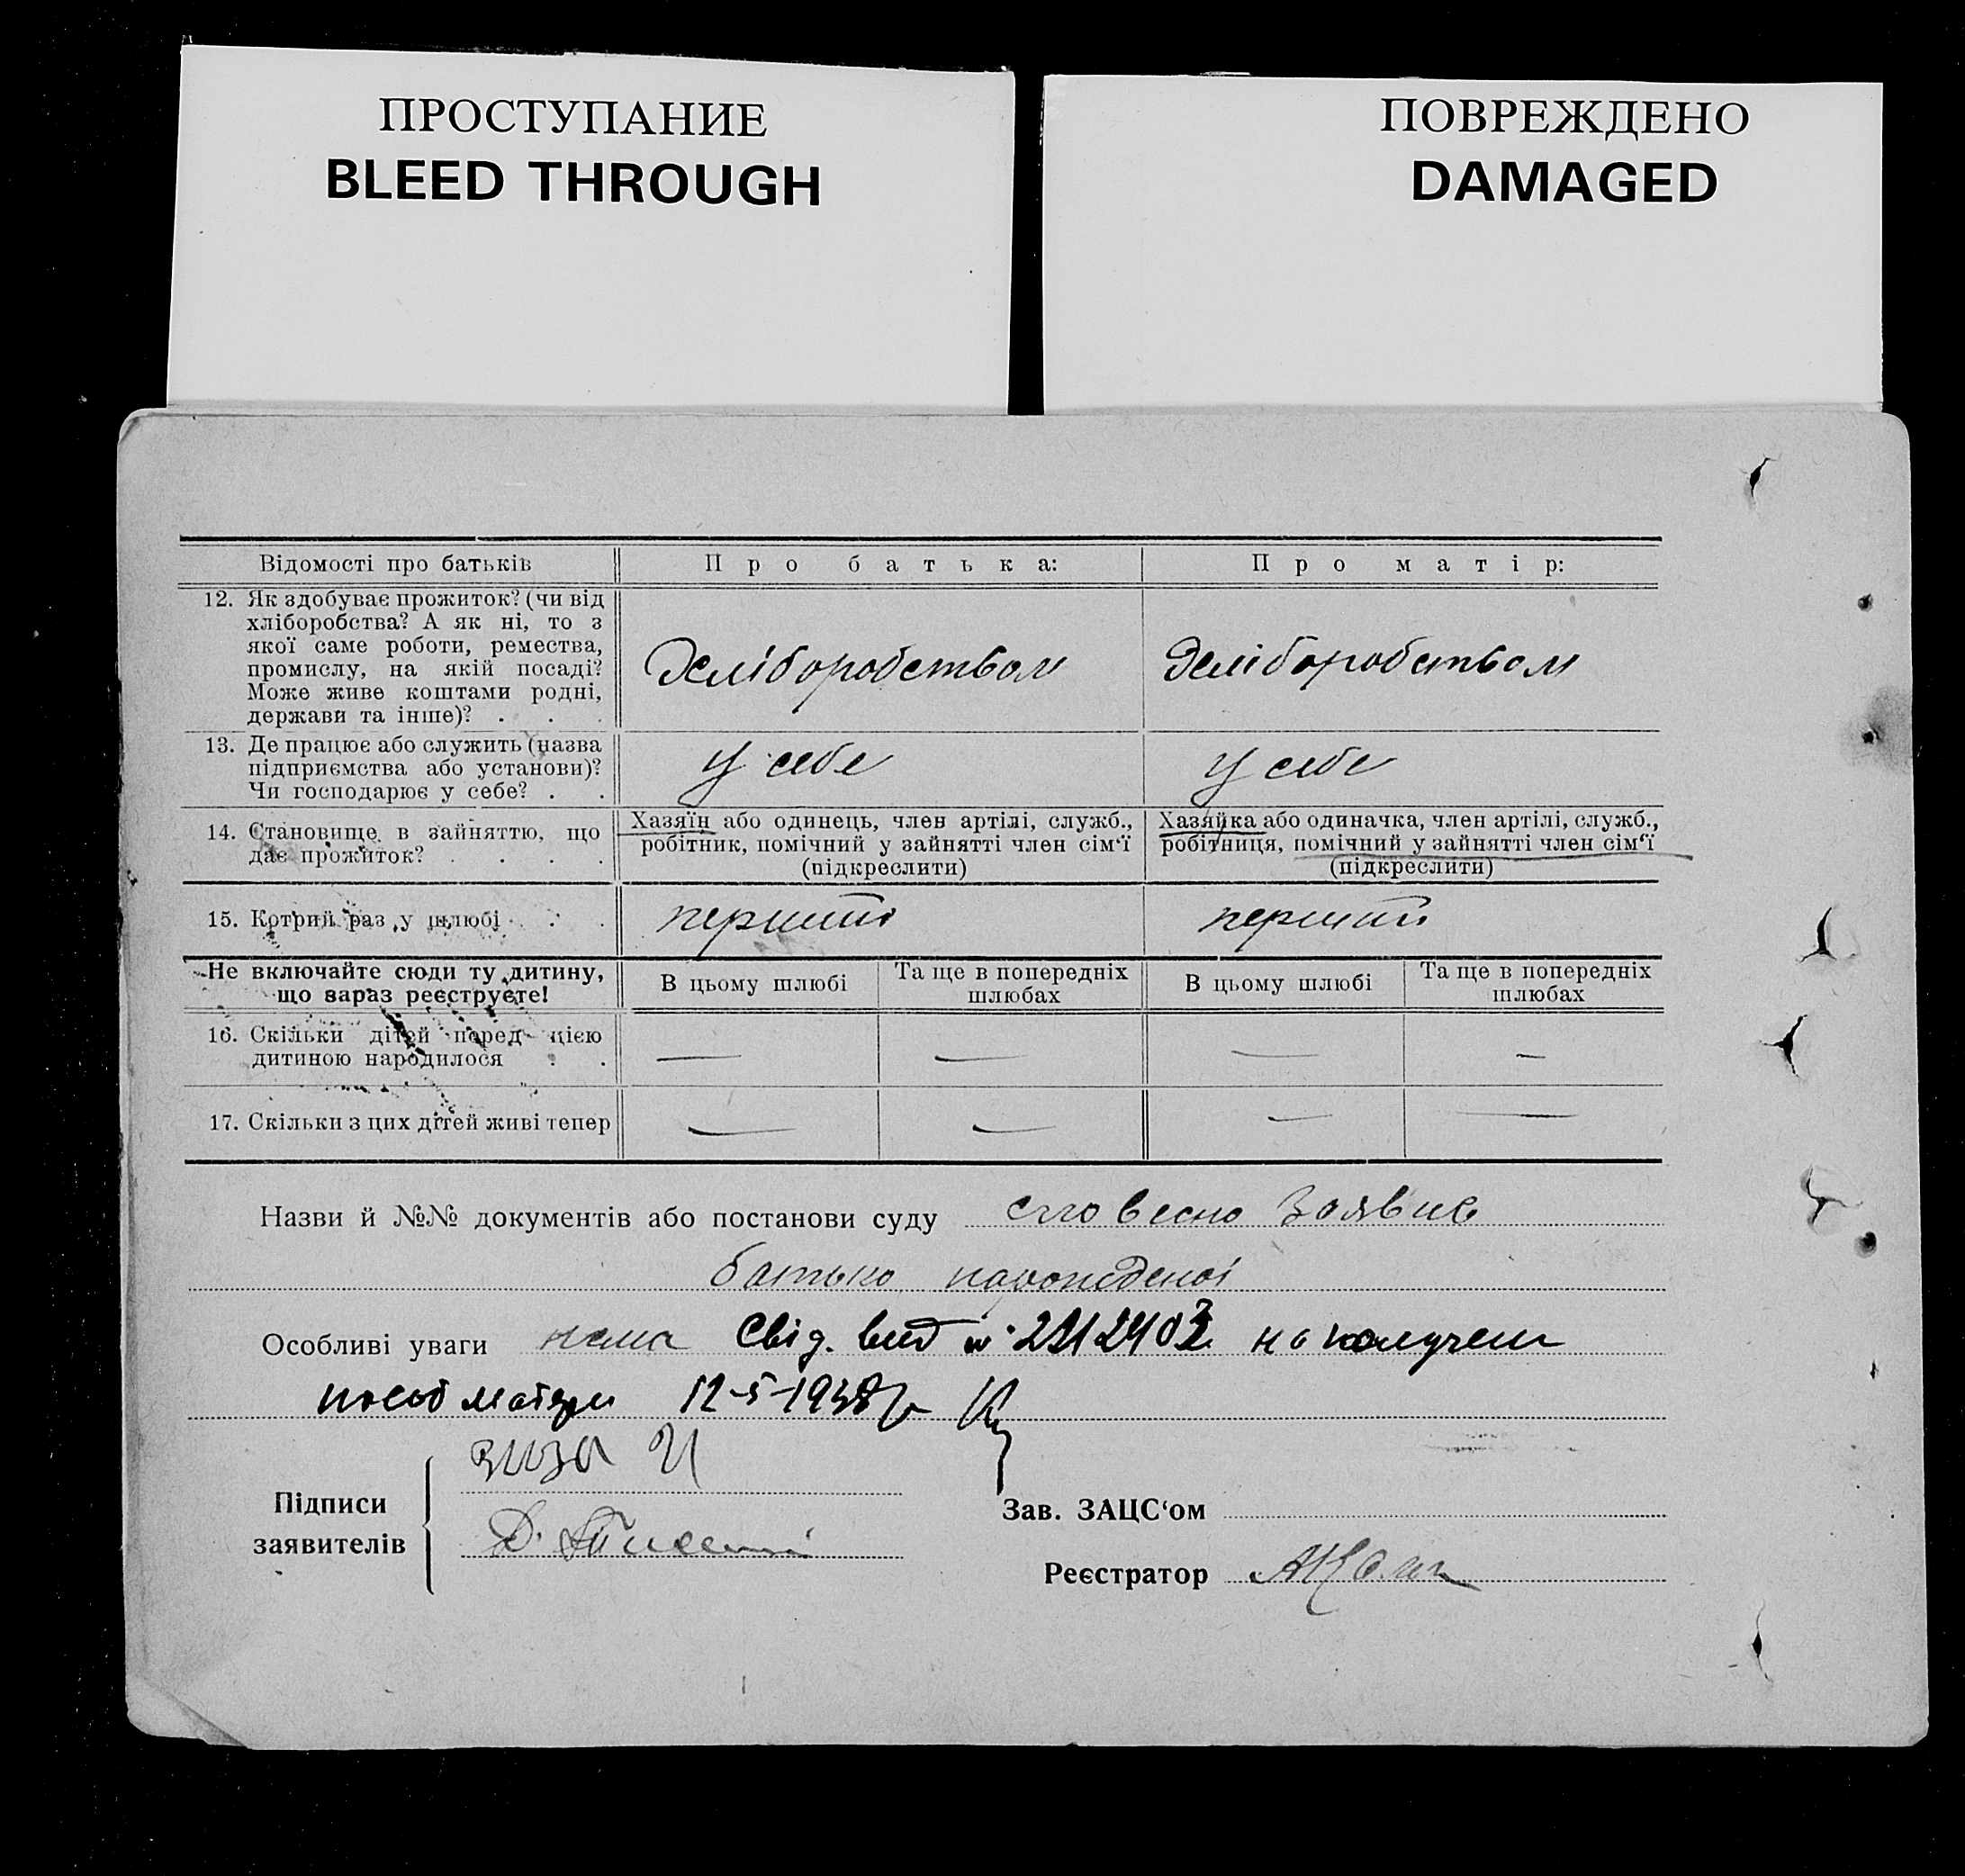 ПРОСТУПАНИЕ
BLEED THROUGH
ПОВРЕЖДЕНО
DAMAGED
Відомості про батьків
Про батька:
Про матір:
12. Як здобуває прожиток? (чи від
хліборобства? А як ні, то з
якої саме роботи, ремества,
промислу, на якій посаді?
Може живе коштами родні,
держави та інше)? . . .
Хліборобством
Хліборобством
13. Де працює або служить (назва
підприємства або установи)?
Чи господарює у себе? . .
У себе
У себе
14. Становище в зайняттю, що
дає прожиток? . . . .
Хазяїн або одинець, член артілі, служб.,
робітник, помічний у зайнятті член сім‘ї
(підкреслити)
Хазяйка або одиначка, член артілі, служб.,
робітниця, помічний у зайнятті член сім‘ї
(підкреслити)
15. Котрий раз у шлюбі . . .
перший
перший
Не включайте сюди ту дитину,
що зараз реєструєте!
В цьому шлюбі
Та ще в попередніх
шлюбах
В цьому шлюбі
Та ще в попередніх
шлюбах
16. Скільки дітей перед цією
дитиною народилося . .
— — — —
17. Скільки з цих дітей живі тепер
— — — —
Назви й №№ документів або постанови суду словесно заявив
батько народженої
Особливі уваги нема Свід. вид на
пособ матери 12-5-1938
Підписи
заявителів
Зав. ЗАЦС‘ом
Реєстратор